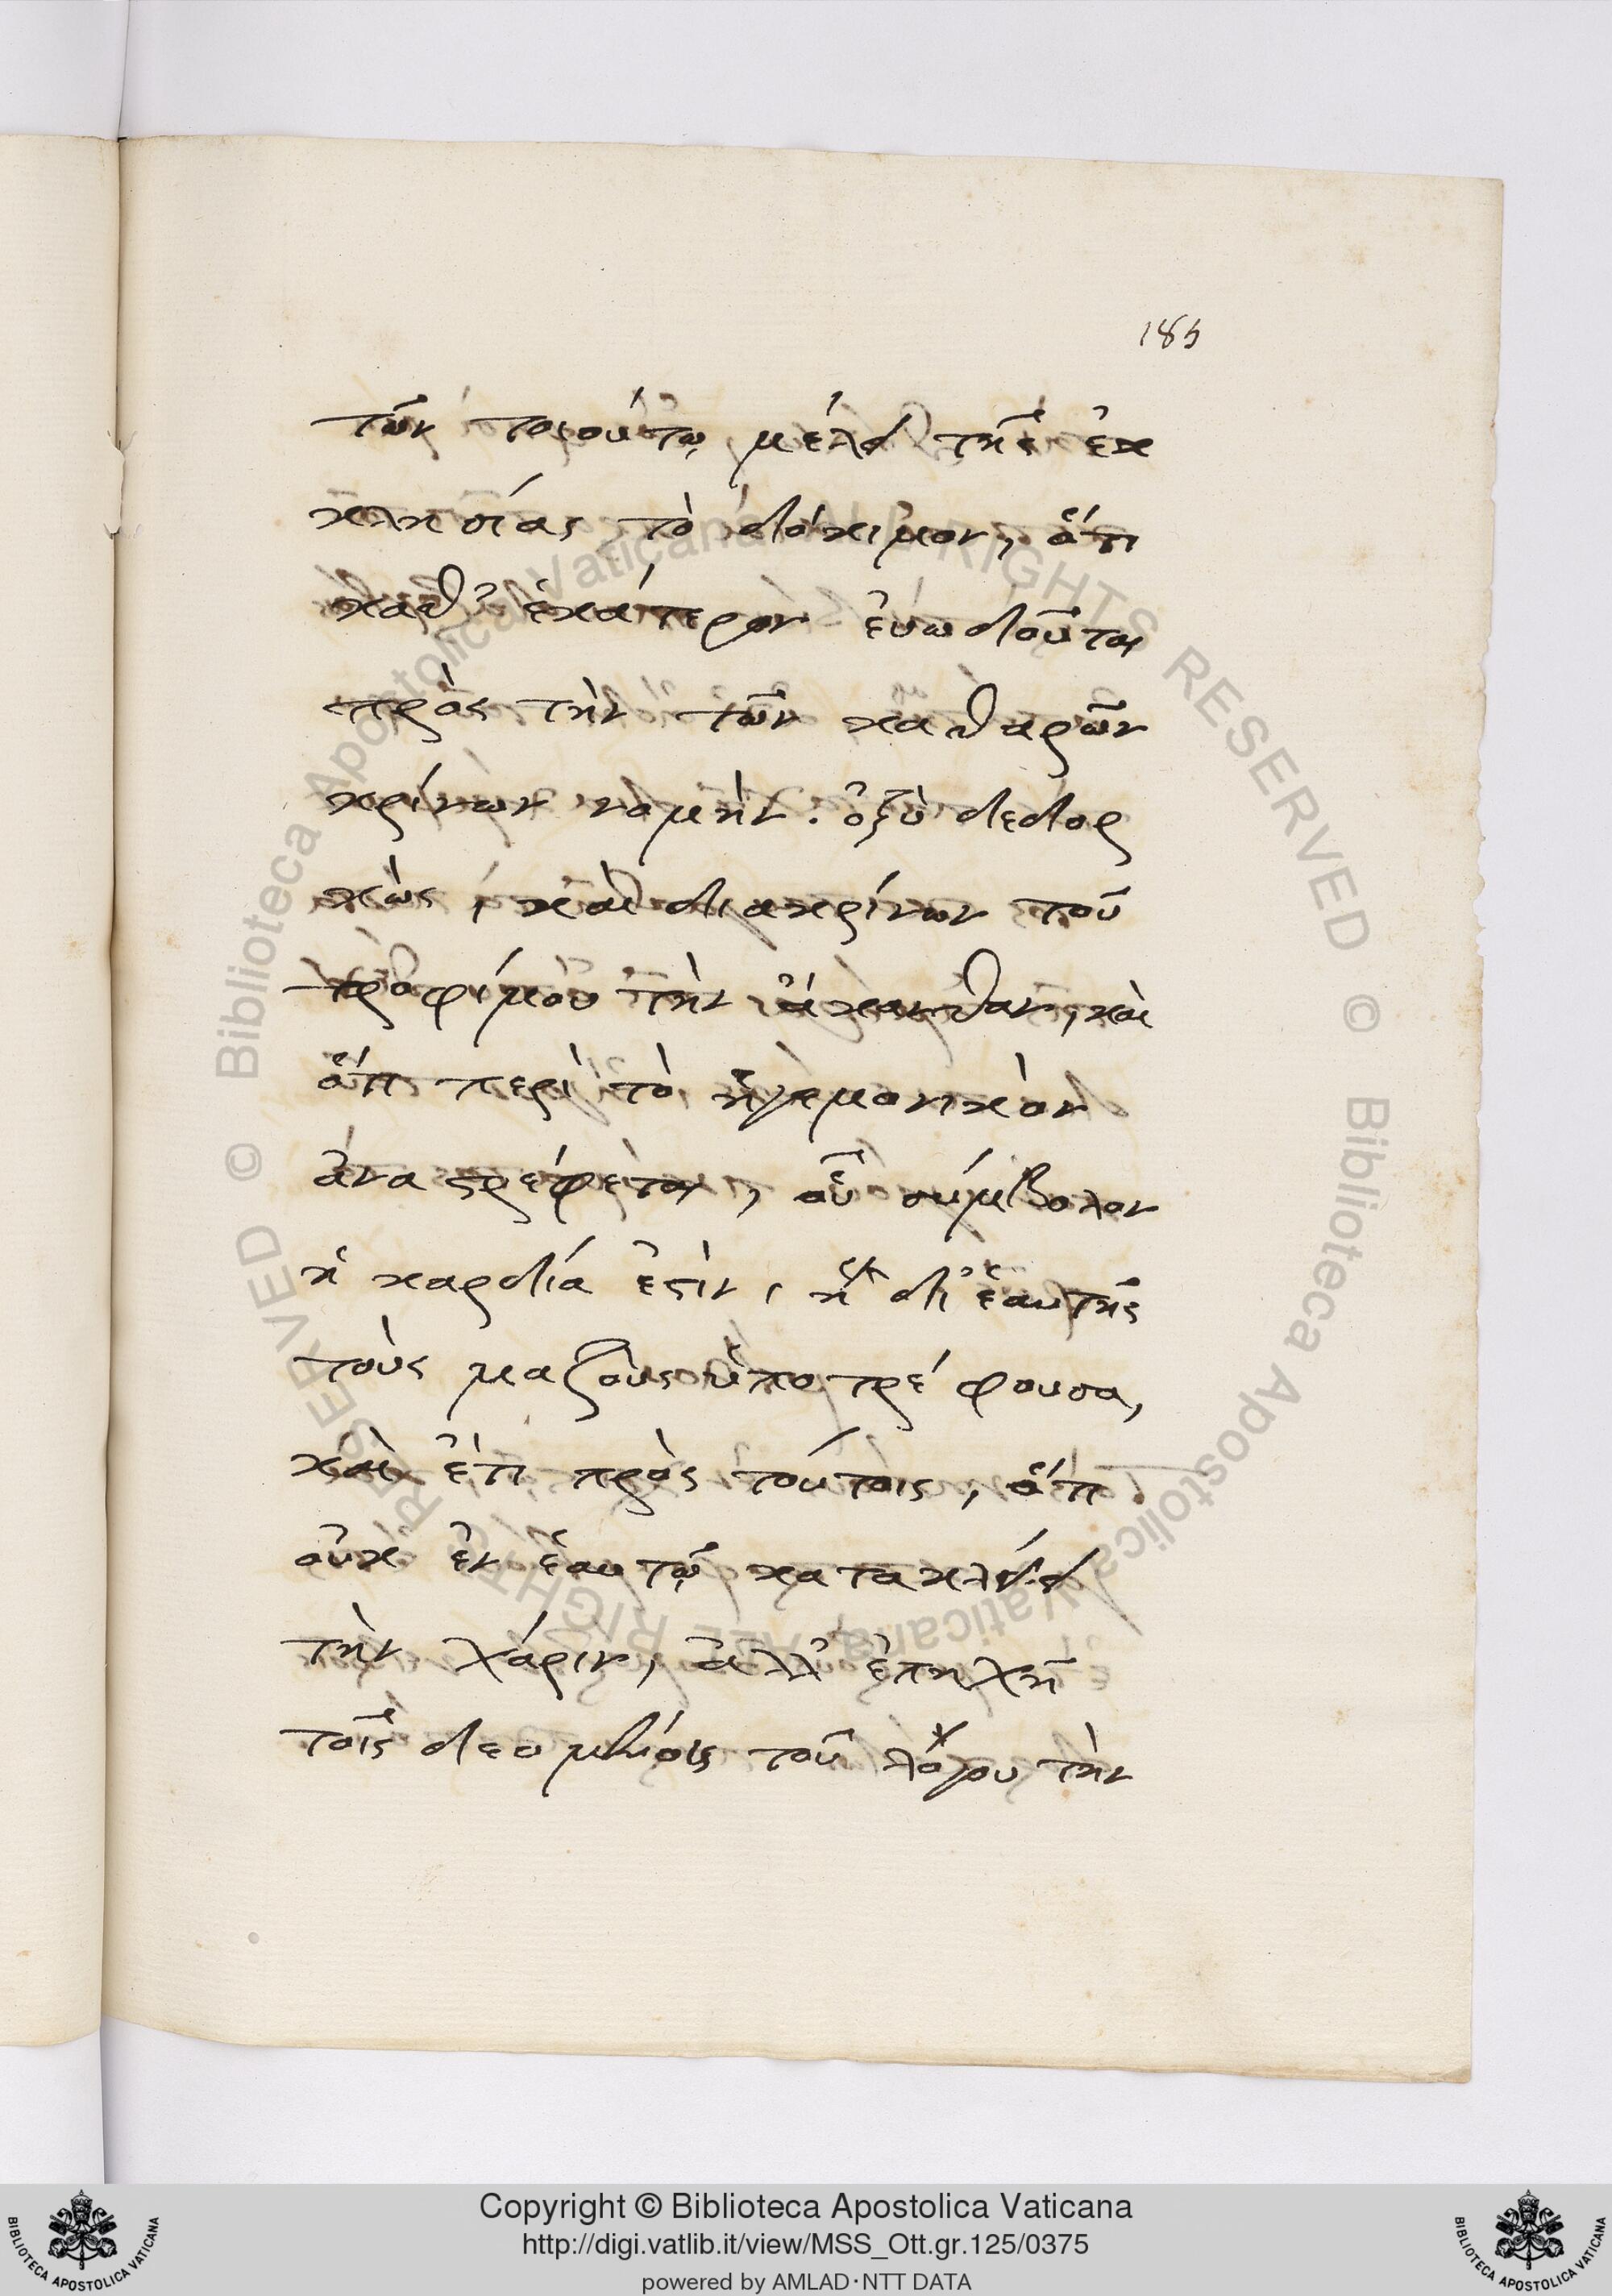 185
τῶν τοιούτῳ μέλει τῆς ἐκ
κλησίας τὸ δόκιμον, ὅτι
καθ' ἑκάτερον ἐυωδοῦται
πρὸς τὴν τῶν καθαρῶν
κρίνων νομὴν. ὀξὺ δεδορ
κὼς, καὶ διακρίνων τοῦ
τροφίμου τὴν ἄκανθαν, καὶ
ὅτι περὶ τὸ ἡγεμονικὸν
ἀναστρέφεται, οὗ σύμβολον
ἡ καρδία ἐστὶν, ἣ δι' ἑαυτῆς
τοὺς μαζοὺς ὑποτρέφουσα,
καὶ ἔτι πρὸς τούτοις, ὅτι
οὐκ ἐν ἑαυτῷ κατακλείει
τὴν χάριν, ἀλλ' ἐπηχῆ
τοῖς δεομένοις τοῦ λόγου τὴν
© Biblioteca Apostolica Vaticana ALL RIGHTS RESERVED © Biblioteca Apostolica Vaticana ALL RIGHTS RESERVED
Copyright © Biblioteca Apostolica Vaticana
http://digi.vatlib.it/view/MSS_Ott.gr.125/0375
powered by AMLAD·NTT DATA
BIBLIOTECA APOSTOLICA VATICANA
BIBLIOTECA APOSTOLICA VATICANA